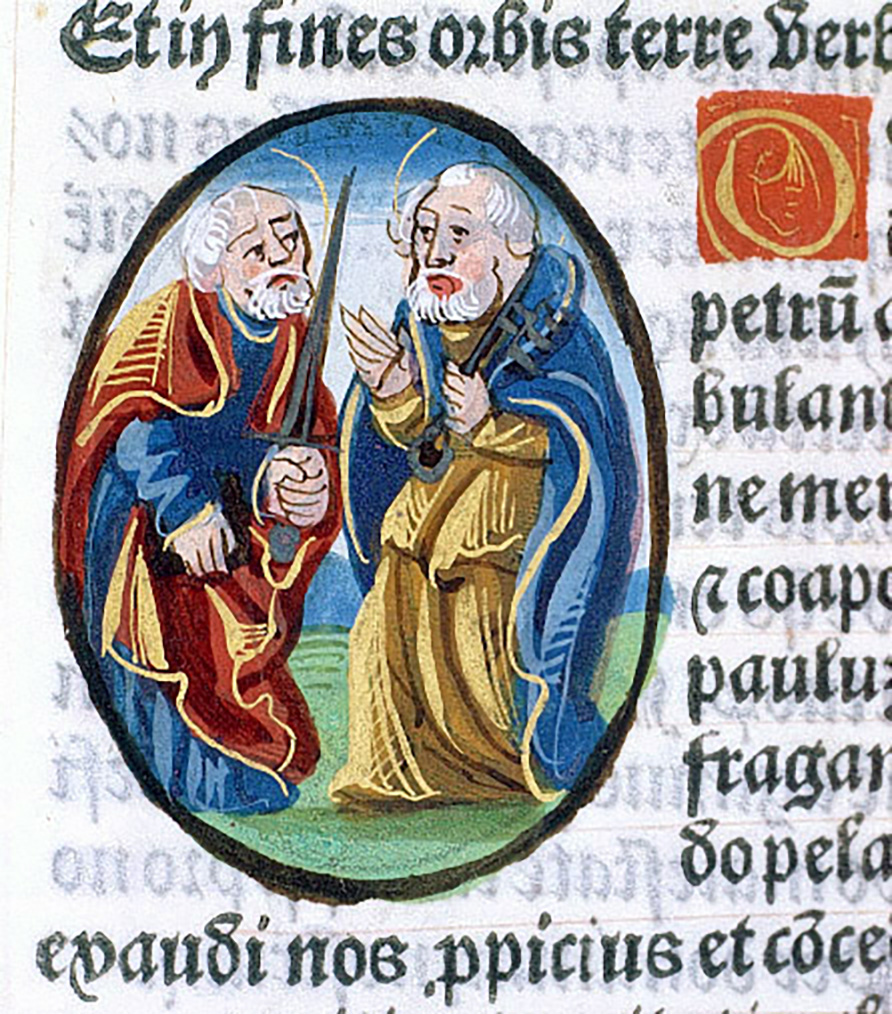 Et in fines orbis terre verb
O
petrū
bulan
ne mer
⁊ coapo
paulu
fragan
do pela
exaudi nos ꝓpicius et cōce